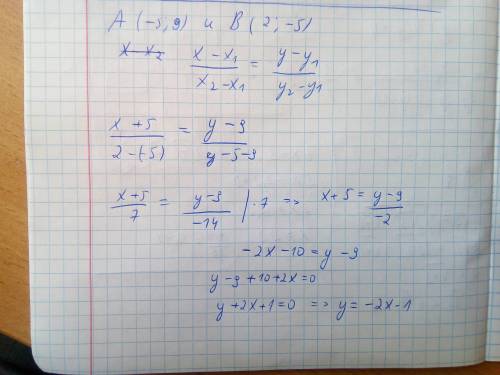 A (-5; 9) и B (2; -5)
x - x₂ (x - x₁)/(x₂ - x₁) = (y - y₁)/(y₂ - y₁)
(x + 5)/(2 - (-5)) = (y - 9)/(y - 5 - 9)
(x + 5)/7 = (y - 9)/(-14) | · 7 => x + 5 = (y - 9)/(-2)
-2x - 10 = y - 9
y - 9 + 10 + 2x = 0
y + 2x + 1 = 0 => y = -2x - 1